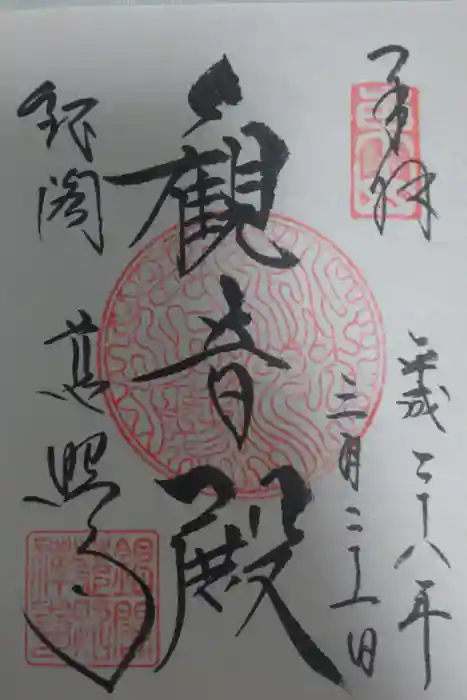 奉拝
平成二十八年
三月二十一日
観音殿
銀閣
慈照寺